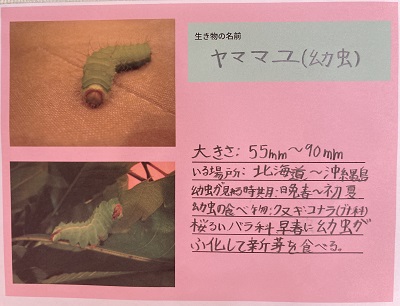 生き物の名前
ヤママユ(幼虫)
大きさ: 55mm～90mm
いる場所: 北海道～沖縄島
幼虫が見れる時期: 晩春～初夏
幼虫の食べ物: クヌギ・コナラ(ブナ科)
桜るいバラ科 早春に幼虫が
ふ化して新芽を食べる。